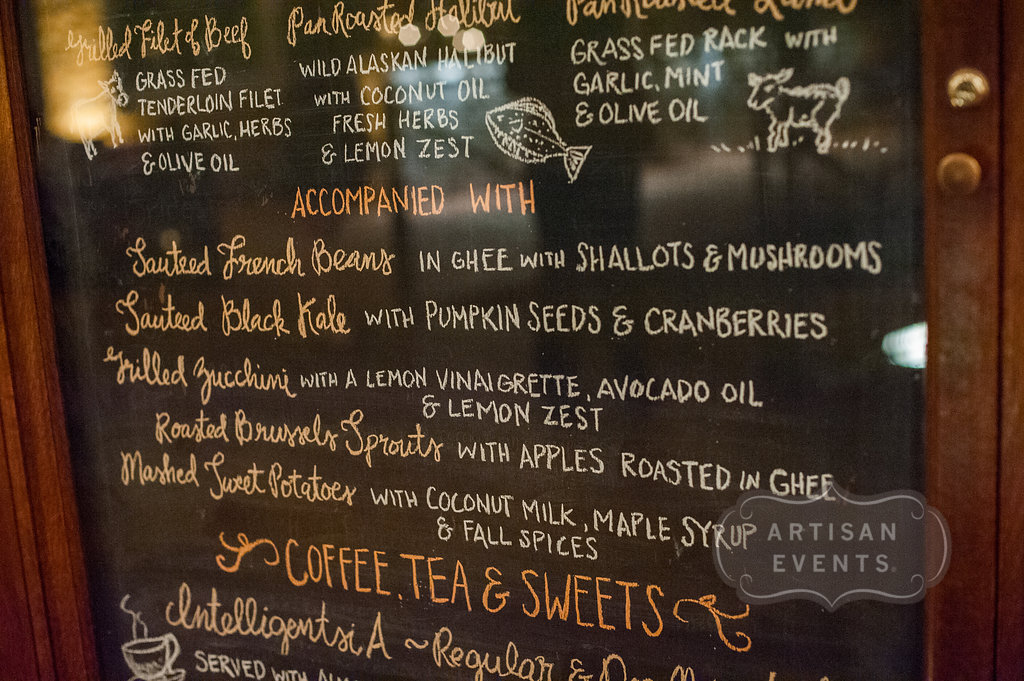 Grilled Filet of Beef
GRASS FED
TENDERLOIN FILET
WITH GARLIC, HERBS
& OLIVE OIL
Pan Roasted Halibut
WILD ALASKAN HALIBUT
WITH COCONUT OIL
FRESH HERBS
& LEMON ZEST
Pan Roasted Lamb
GRASS FED RACK WITH
GARLIC, MINT
& OLIVE OIL
ACCOMPANIED WITH
Sauteed French Beans IN GHEE WITH SHALLOTS & MUSHROOMS
Sauteed Black Kale WITH PUMPKIN SEEDS & CRANBERRIES
Grilled Zucchini WITH A LEMON VINAIGRETTE, AVOCADO OIL
& LEMON ZEST
Roasted Brussels Sprouts WITH APPLES ROASTED IN GHEE
Mashed Sweet Potatoes WITH COCONUT MILK, MAPLE SYRUP
& FALL SPICES
ARTISAN
EVENTS
COFFEE, TEA & SWEETS
IntelligentsiA ~ Regular &
SERVED WITH